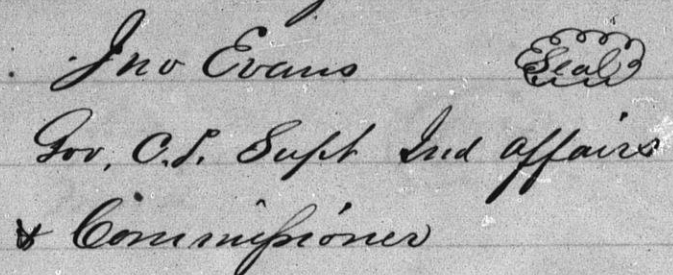 Jno Evans Seal
Gov. C.T. Supt Ind affairs
& Commissioner